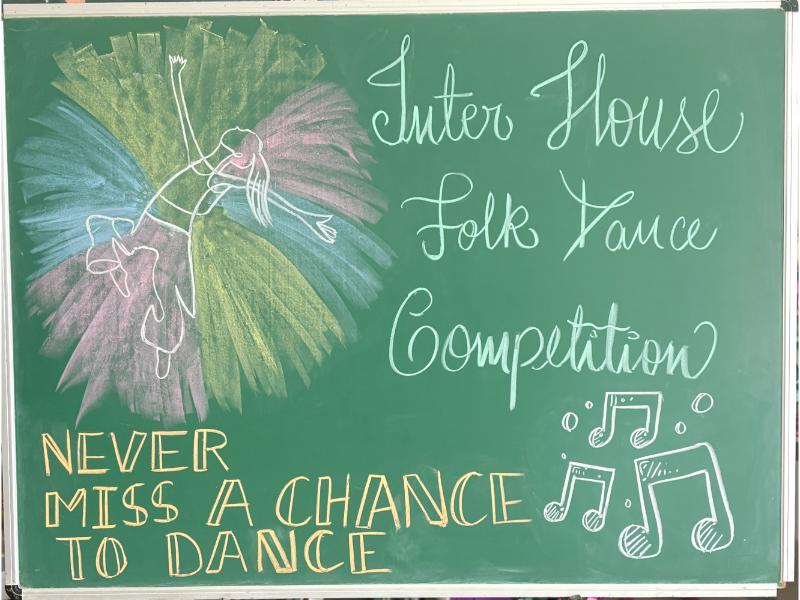 Inter House
Folk Dance
Competition
NEVER
MISS A CHANCE
TO DANCE